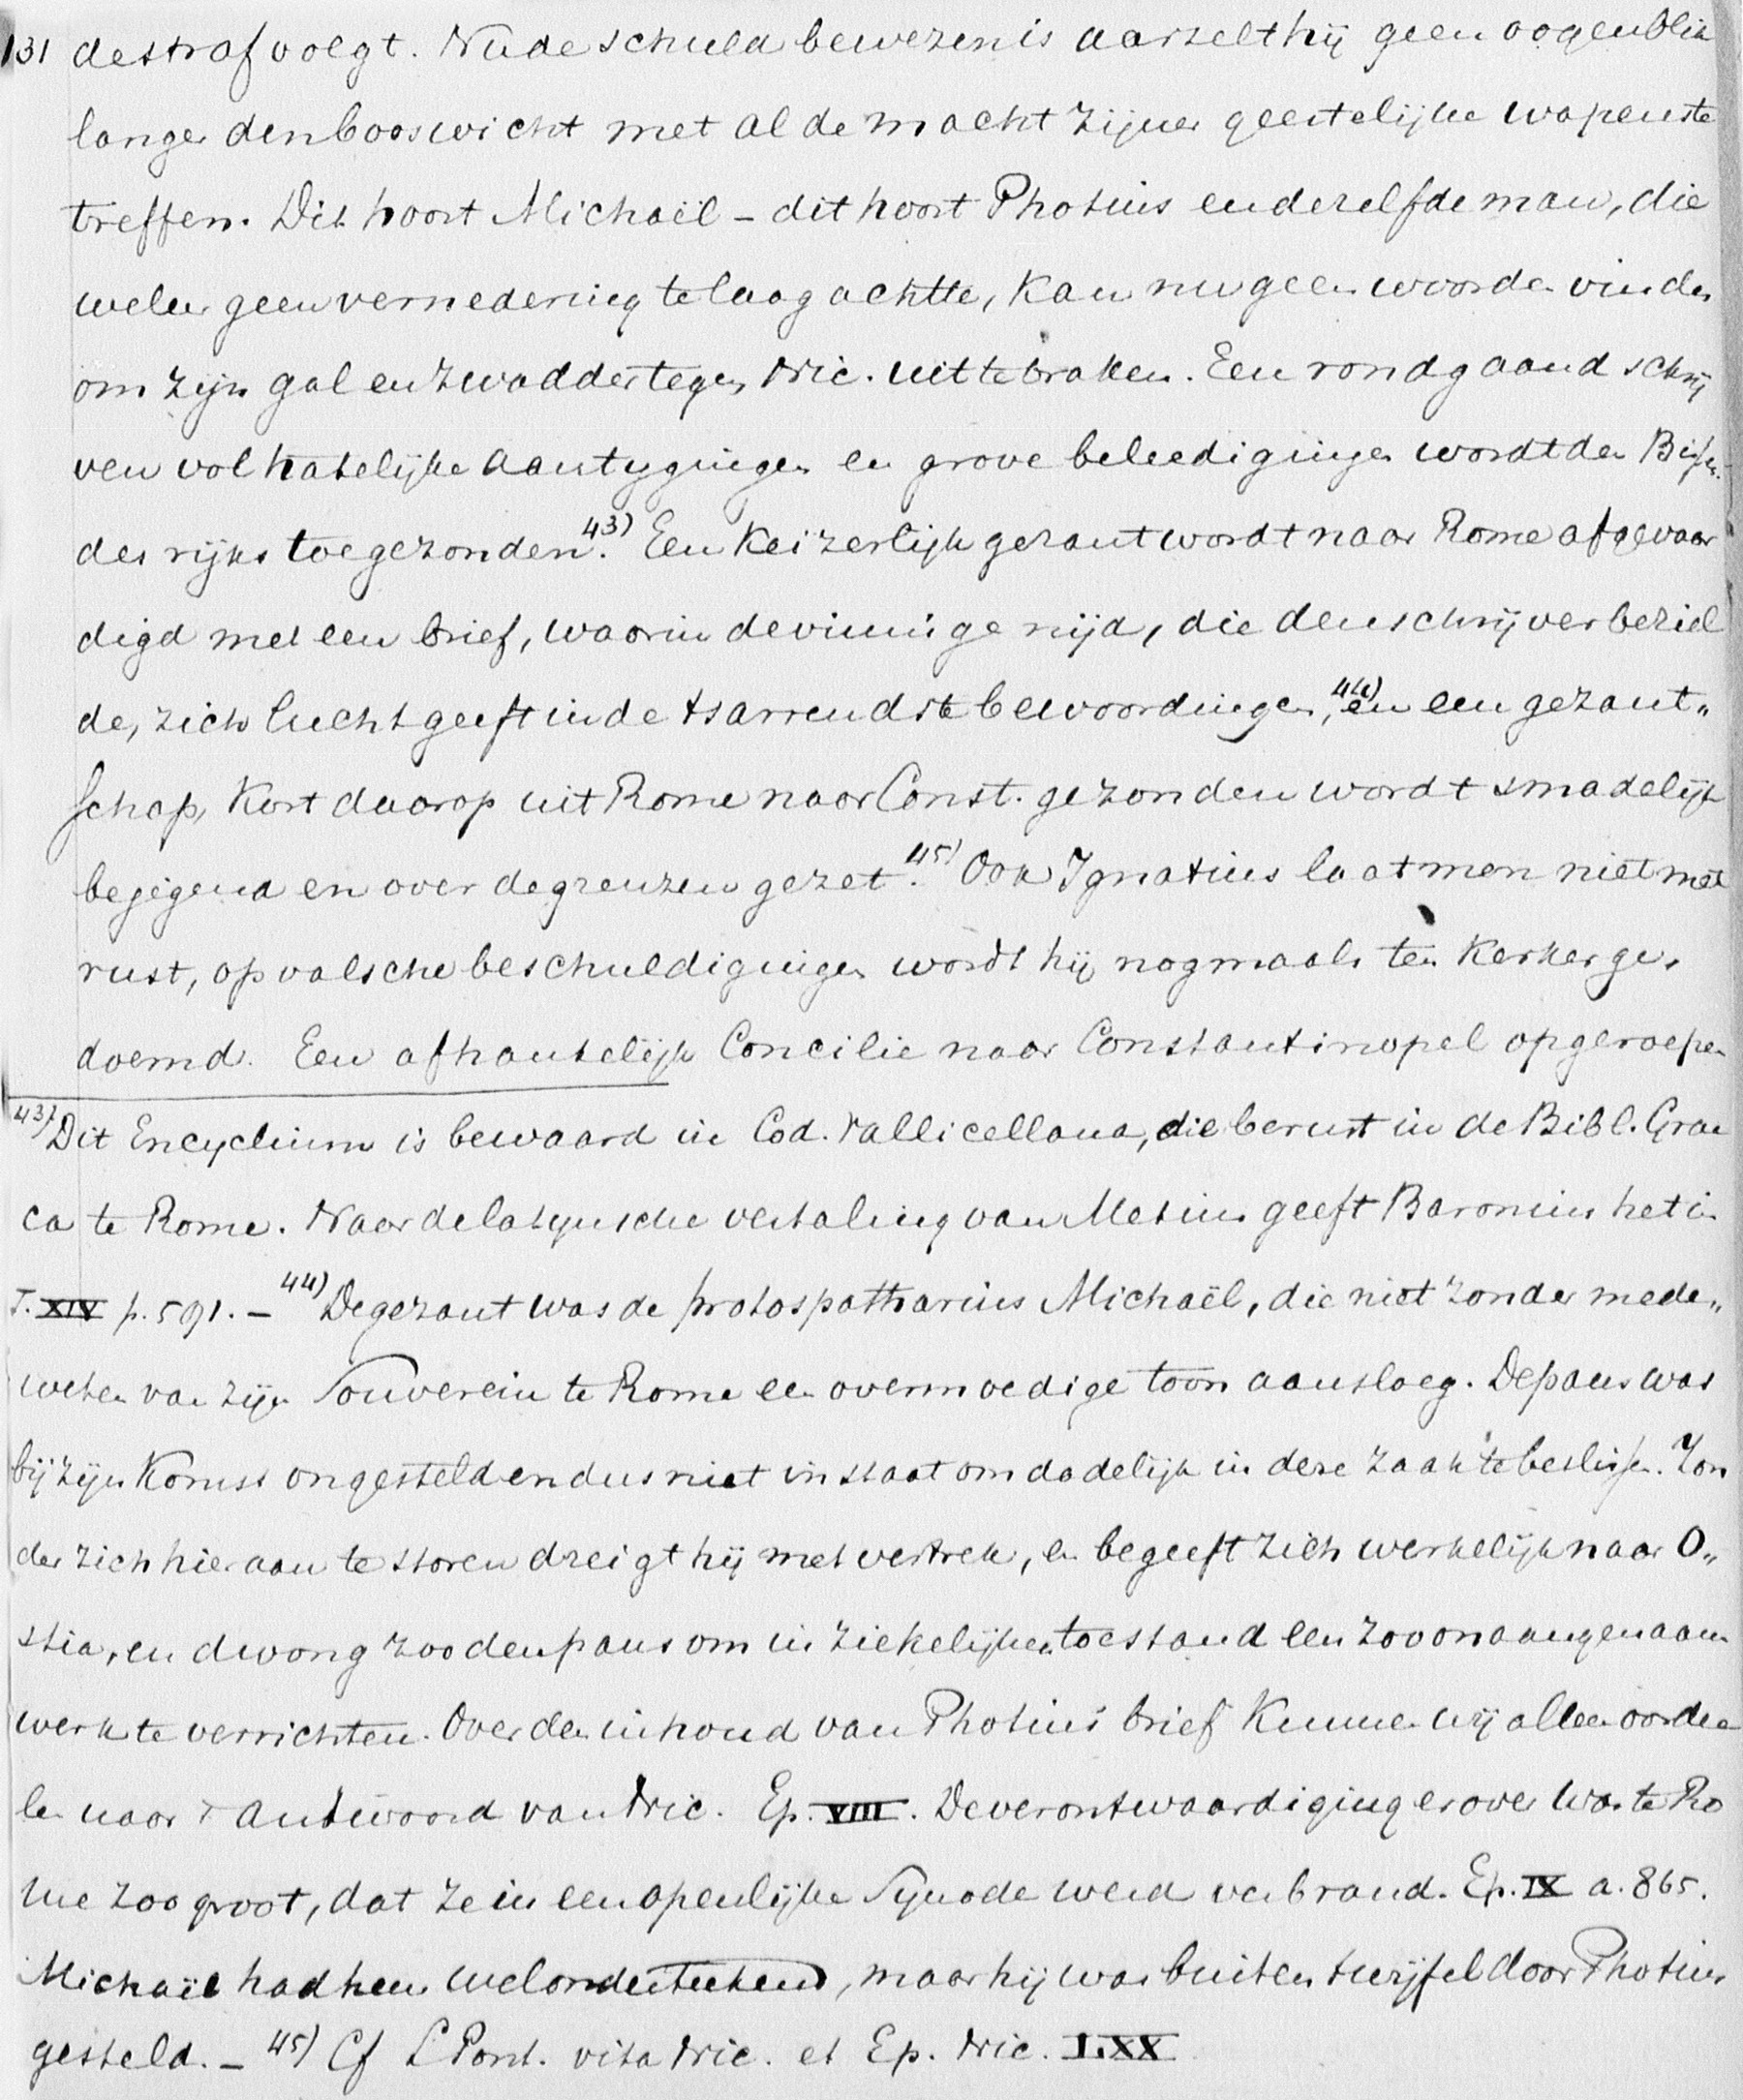 131 de straf volgt. Nu de schuld bewezen is aarzelt hij geen oogenblik
langer den booswicht met al de macht zijner geestelijke wapens te
treffen. Dit hoort Michaël – dit hoort Photius en dezelfde man, die
weleer geen vernedering te laag achtte, kan nu geen woorden vinden
om zijn gal en zwadder tegen Nic. uit te braken. Een rondgaand schrij
ven vol hatelijke aantygingen en grove beleedigingen wordt den Bissch.
des rijks toegezonden.43) Een Keizerlijk gezant wordt naar Rome afgevaar
digd met een brief, waarin de vinnige nijd, die den schrijver beziel
de, zich lucht geeft in de tsarrendste bewoordingen,44) en een gezant„
schap, kort daarop uit Rome naar Const. gezonden wordt smadelijk
bejegend en over de grenzen gezet.45) Ook Ignatius laat men niet met
rust, op valsche beschuldigingen wordt hij nogmaals ten kerker ge„
doemd. Een afhankelijk Concilie naar Constantinopel opgeroepen
43) Dit Encyclium is bewaard in Cod. Vallicellana, die berust in de Bibl. Grae
ca te Rome. Naar de latynsche vertaling van Metius geeft Baronius het in
T. XIV p. 591. – 44) De gezant was de protospatharius Michaël, die niet zonder mede„
weten van zijn Souverein te Rome een overmoedige toon aansloeg. De paus was
bij zijn komst ongesteld en dus niet in staat om dadelijk in deze zaak te beslissen. Zon
der zich hieraan te storen dreigt hij met vertrek, en begeeft zich werkelijk naar O„
stia, en dwong zoo den paus om in ziekelijken toestand een zoo onaangenaam
werk te verrichten. Over den inhoud van Photius' brief kunnen wij alleen oordee
len naar 't antwoord van Nic. Ep. VIII. De verontwaardiging erover was te Ro
me zoo groot, dat ze in een openlijke Synode werd verbrand. Ep. IX a. 865.
Michaël had hem wel onderteekend, maar hij was buiten twijfel door Photius
gesteld. – 45) Cf L Pont. vita Nic. et Ep. Nic. LXX